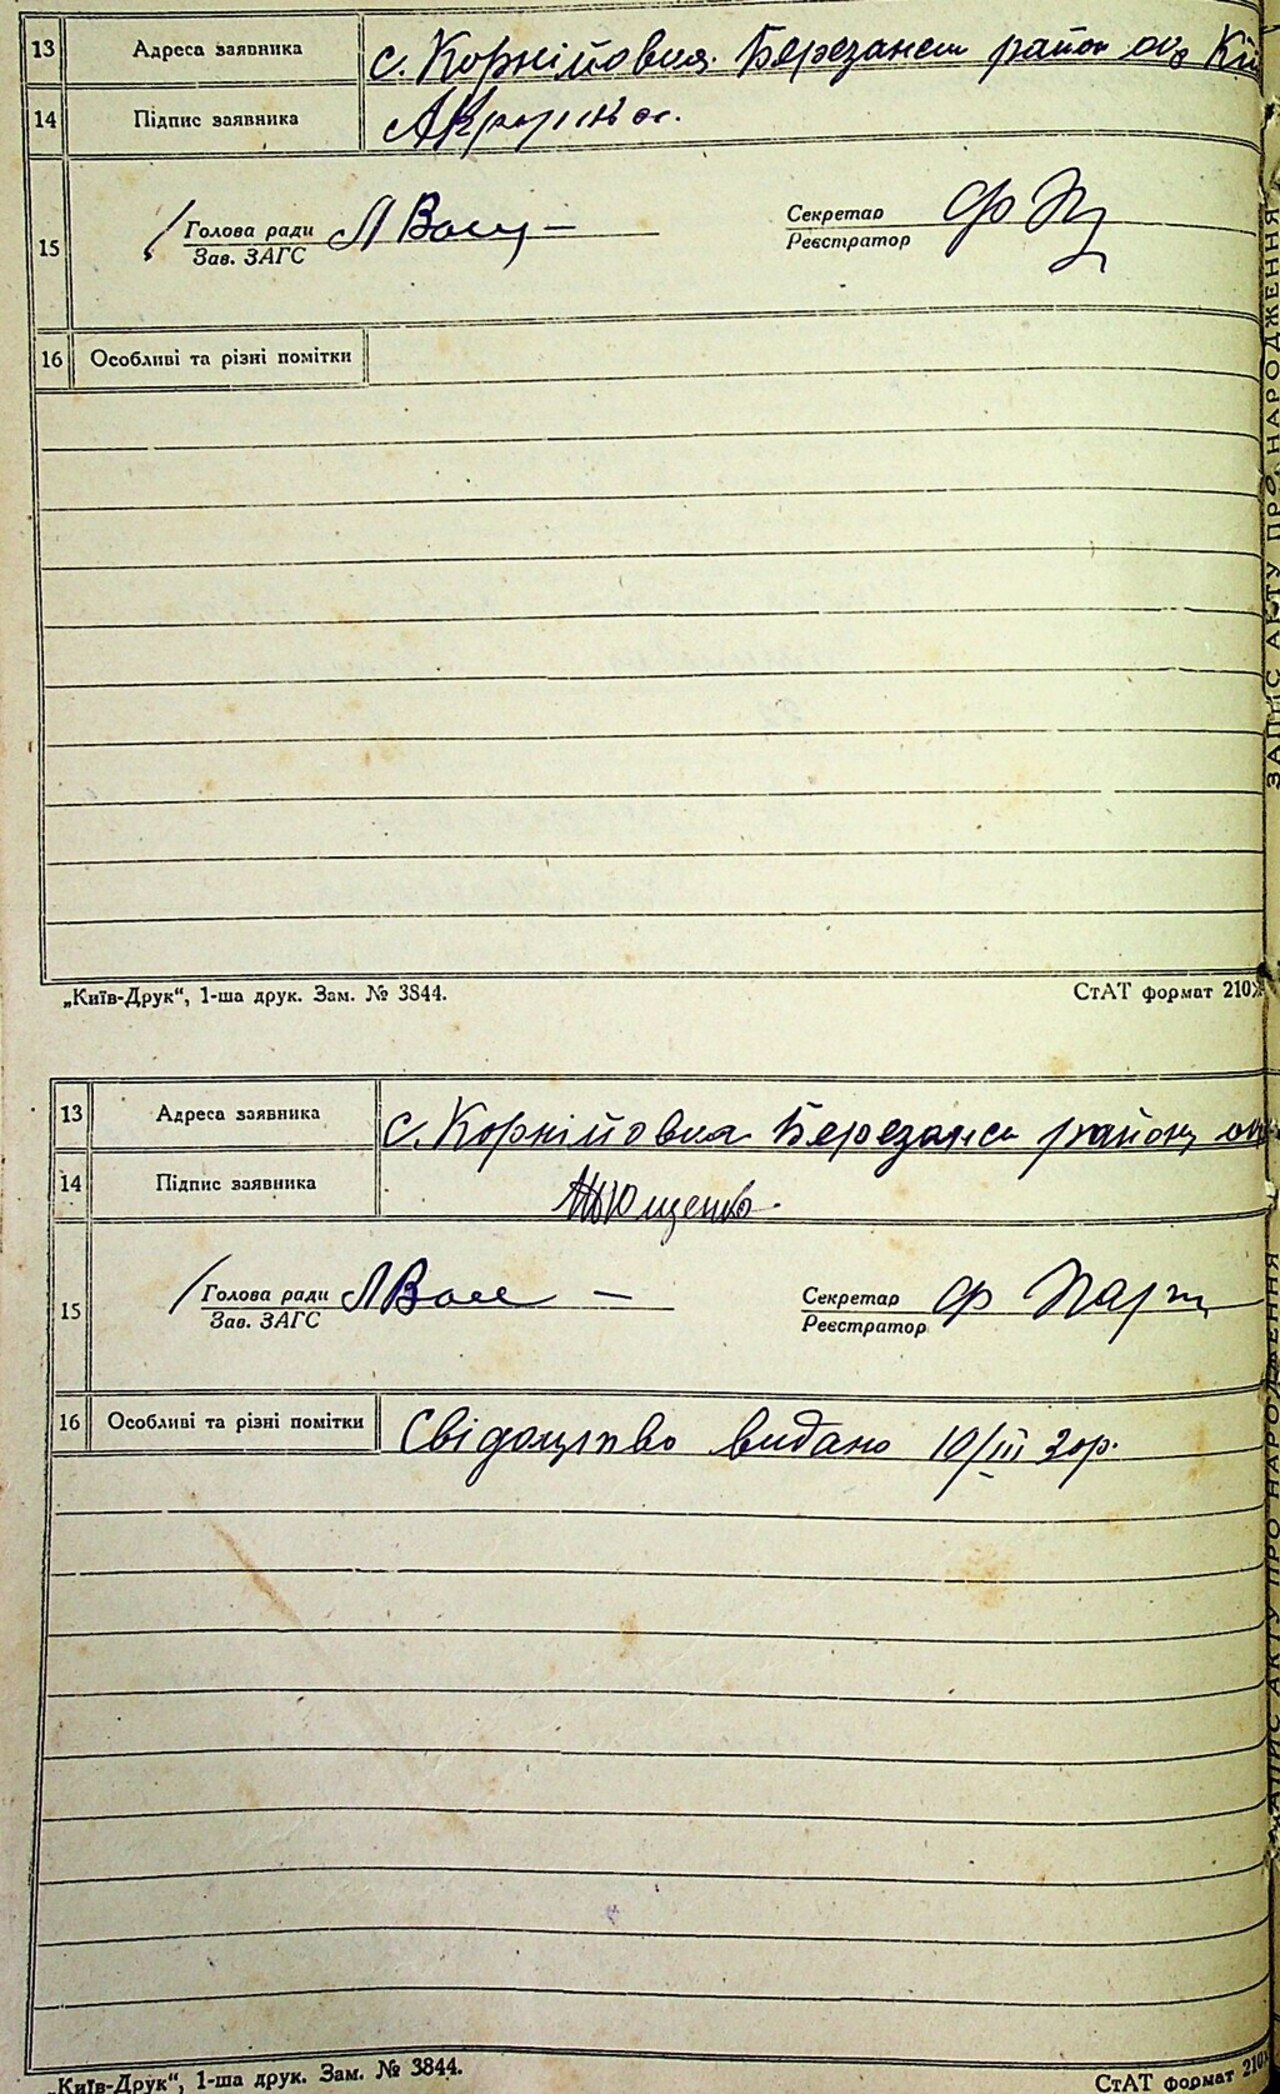 13 Адреса заявника с. Корнійовка Березанськ район
14 Підпис заявника
Голова ради Секретар
15 Зав. ЗАГС Реєстратор
16 Особливі та різні помітки
„Київ-Друк“, 1-ша друк. Зам. № 3844. СтАТ формат 210×
13 Адреса заявника с. Корнійовка Березанськ району
14 Підпис заявника Ющенко
Голова ради Секретар
15 Зав. ЗАГС Реєстратор
16 Особливі та різні помітки Свідоцтво видано 10/III
„Київ-Друк“, 1-ша друк. Зам. № 3844. СтАТ формат 210×
ЗАПИС АКТУ ПРО НАРОДЖЕННЯ
ЗАПИС АКТУ ПРО НАРОДЖЕННЯ